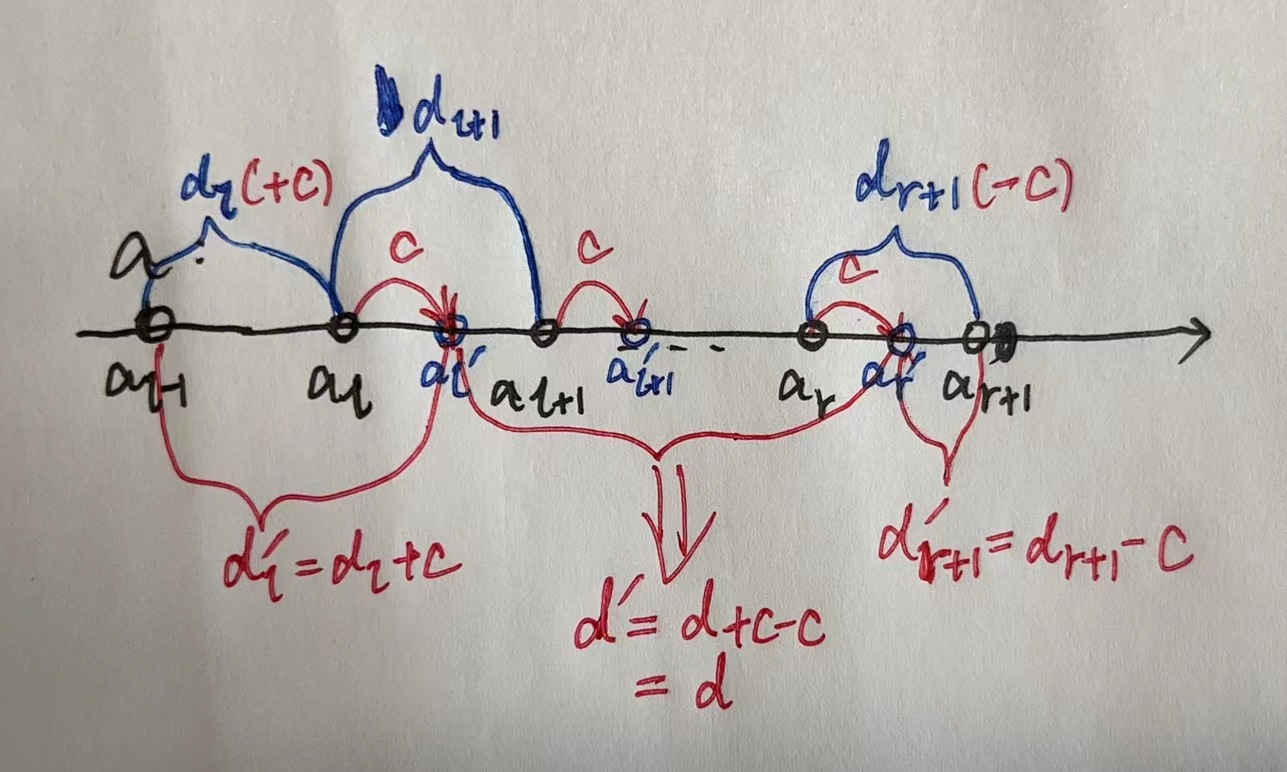 d_{l+1}
d_l(+c)
d_{r+1}(-c)
a
c
c
c
a_{l-1}
a_l
a_l'
a_{l+1}
a'_{l+1}
a_r
a_r'
a_{r+1}
d'_l = d_l+c
d'_{r+1} = d_{r+1}-c
d' = d+c-c
= d